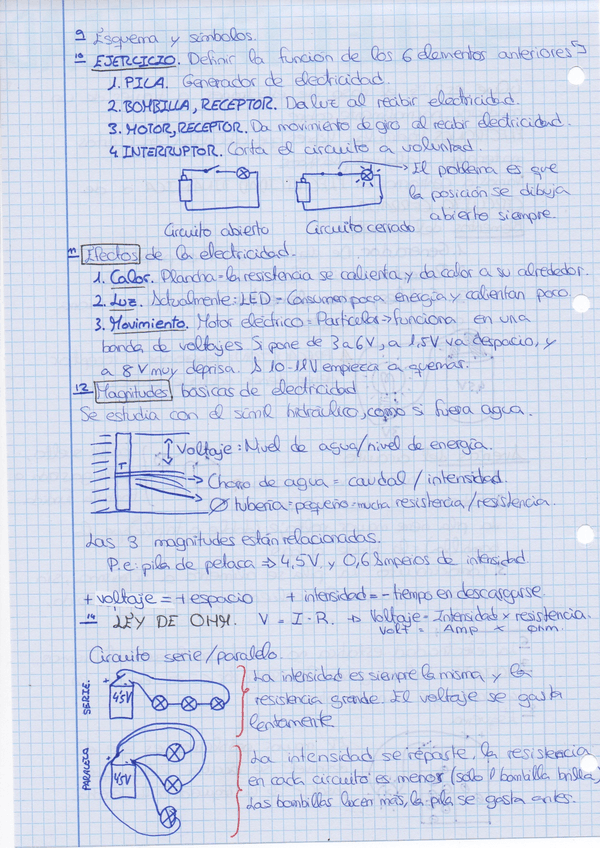 9 Esquema y símbolos.
10 EJERCICIO. Definir la función de los 6 elementos anteriores
1. PILA. Generador de electricidad.
2. BOMBILLA, RECEPTOR. Da luz al recibir electricidad.
3. MOTOR, RECEPTOR. Da movimiento de giro al recibir electricidad.
4. INTERRUPTOR. Corta el circuito a voluntad.
El problema es que
la posición se dibuja
abierto siempre.
Circuito abierto
Circuito cerrado
11 Efectos de la electricidad.
1. Calor. Plancha = la resistencia se calienta y da calor a su alrededor.
2. Luz. Actualmente: LED = Consumen poca energía y calientan poco
3. Movimiento. Motor eléctrico = Particular → funciona en una
banda de voltajes Si pone de 3 a 6V, a 1,5V va despacio, y
a 8V muy deprisa. empieza a quemar.
12 Magnitudes básicas de electricidad
Se estudia con el simil hidráulico, como si fuera agua.
Voltaje: Nivel de agua/nivel de energía.
Chorro de agua = caudal / intensidad.
Ø tubería = pequeño = mucha resistencia/resistencia.
Las 3 magnitudes están relacionadas.
P.e: pila de petaca ⇒ 4,5V y 0,6 Amperios de intensidad
+ voltaje = + espacio + intensidad = - tiempo en descargarse.
14 LEY DE OHM. V = I · R. → Voltaje = Intensidad x resistencia.
Volt = Amp x Ohm.
Circuito serie/paralelo.
SERIE.
+
4'5V
La intensidad es siempre la misma y la
resistencia grande. El voltaje se gasta
lentamente
PARALELO
+
4'5V
La intensidad se reparte, la resistencia
en cada circuito es menor (solo 1 bombilla brilla)
Las bombillas lucen más, la pila se gasta antes.